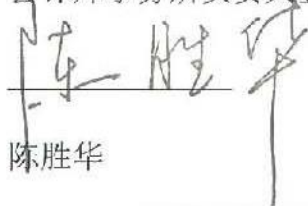 陈胜华
陈胜华